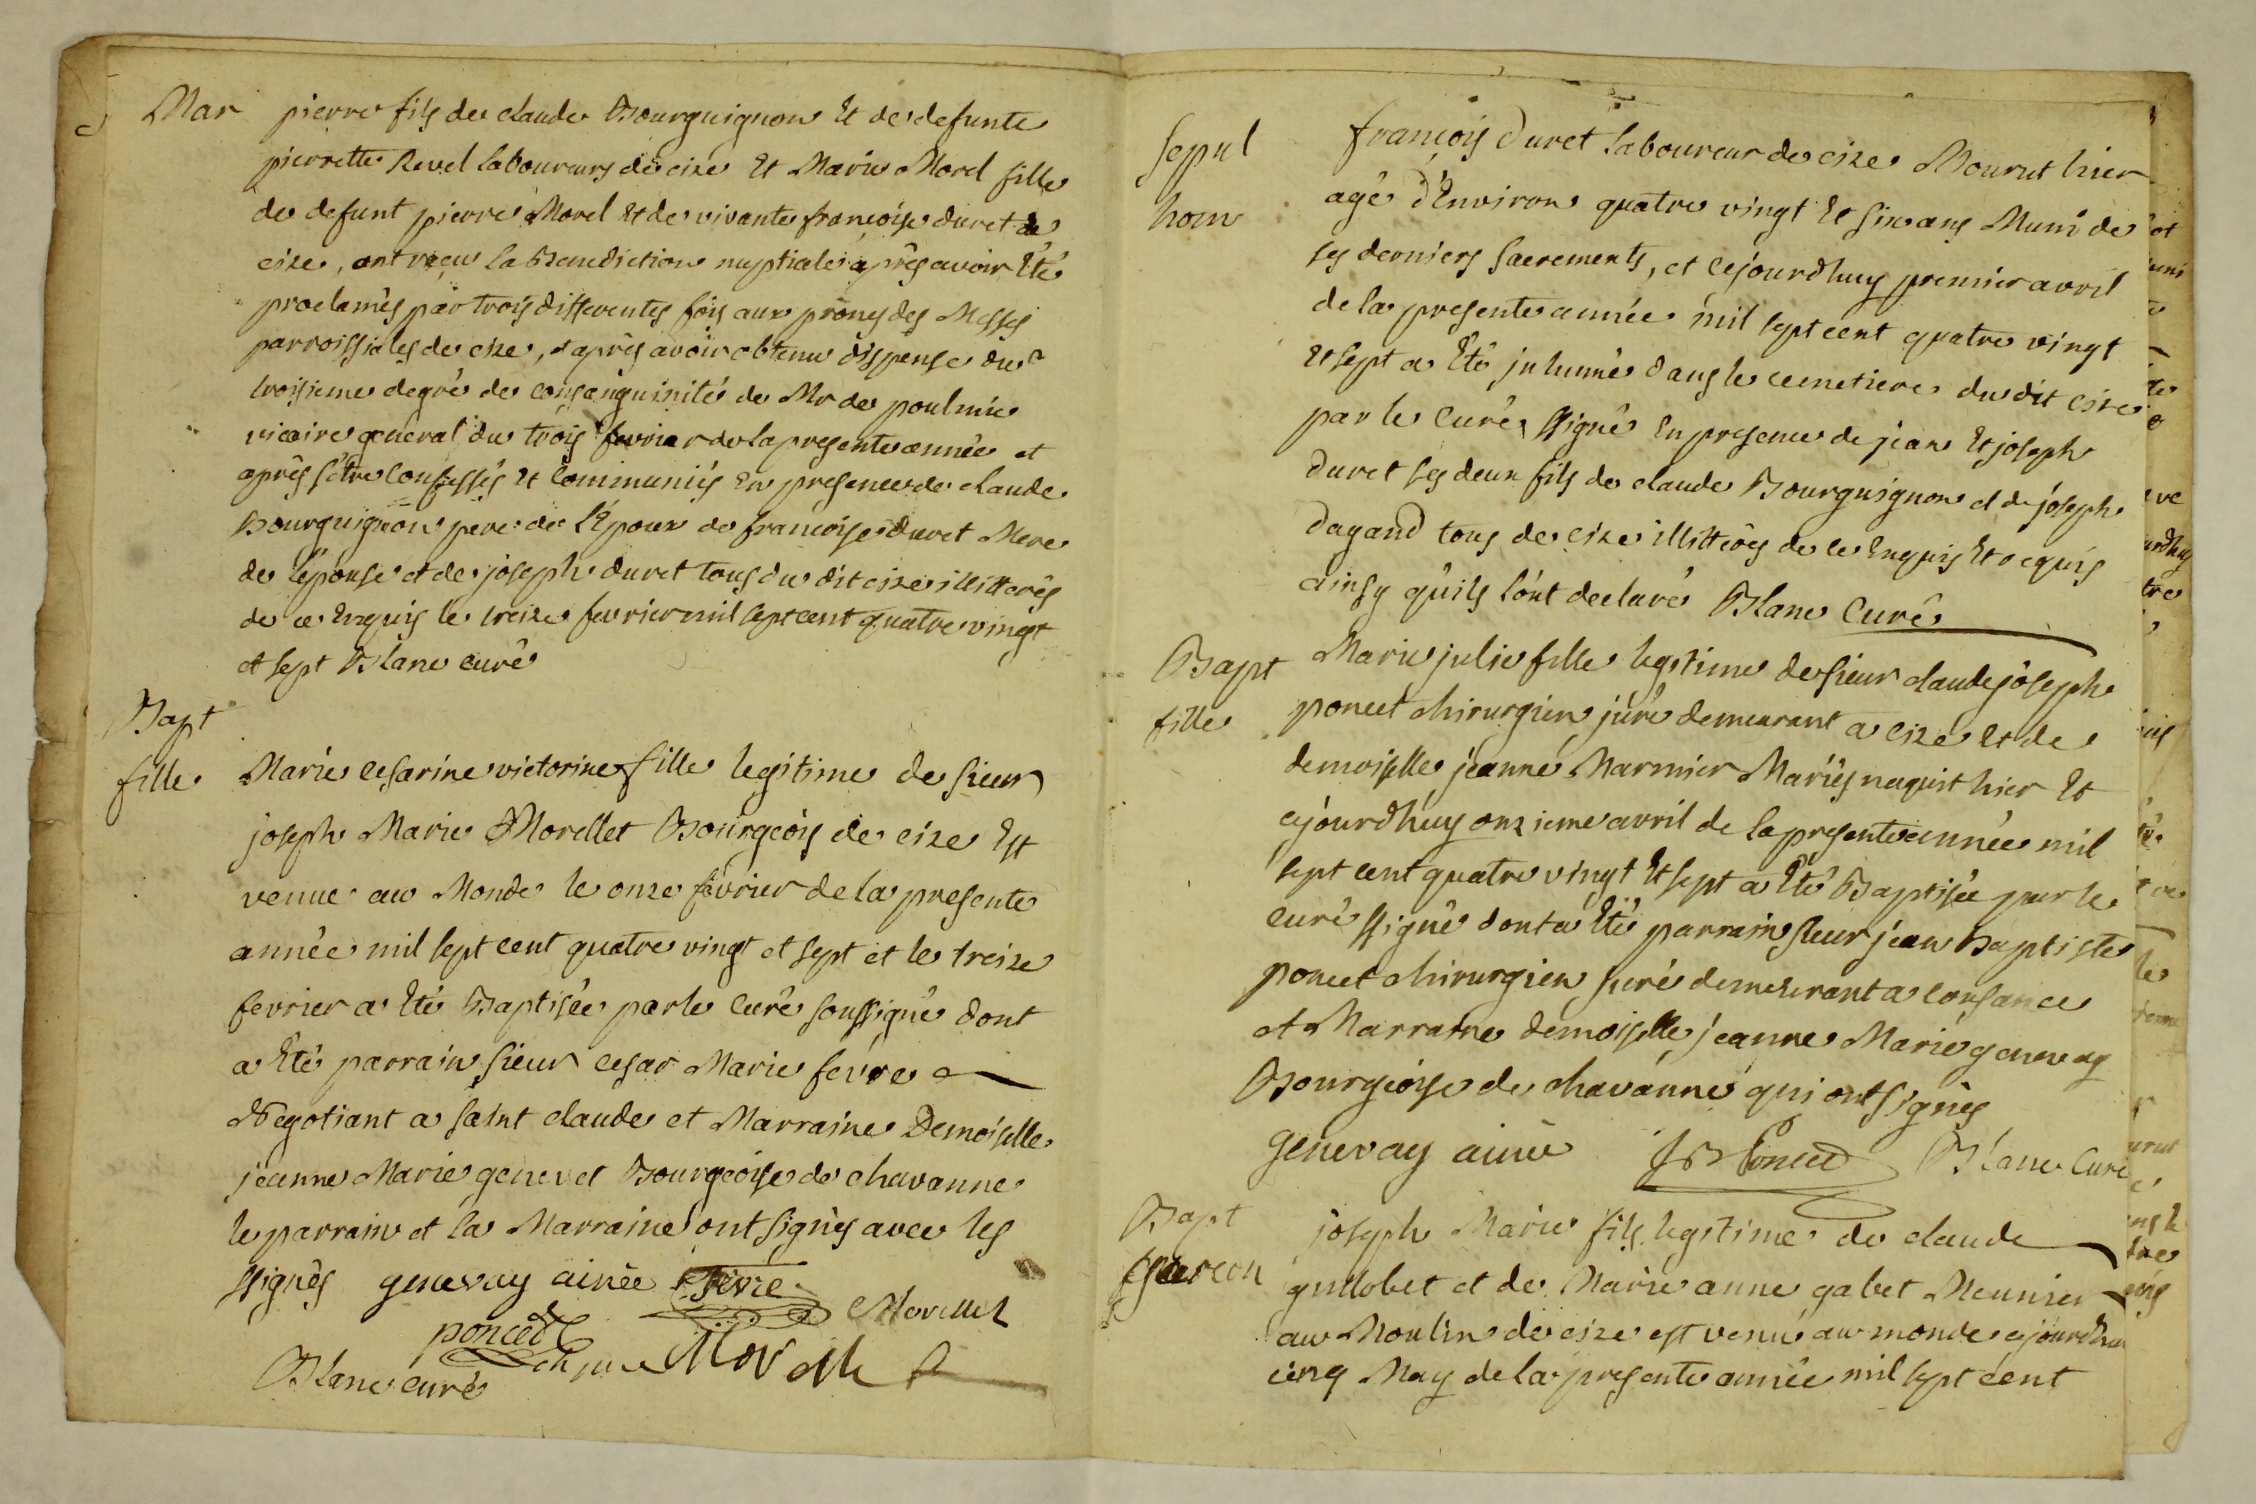 Mar pierre fils de claude Bourguignon Et de defunte
pierrette Revel laboureurs de cize Et Marie Morel fille
de defunt pierre Morel Et de vivante françoise duret de
cize, ont reçu la Benediction nuptiale après avoir Eté
proclamés par trois differentes fois aux prônes des Messes
parroissiales de cize, et après avoir obtenu dispense du
troisieme degré de consanguinité de Mr de poulmic
vicaire general du trois fevrier de la presente année et
après s'être confessés Et communiés En presence de claude
Bourguignon pere de l'Epoux de francoise duret Mere
de l'épouse et de joseph duret tous du dit cize illitterés
de ce Enquis le treize fevrier mil sept cent quatre vingt
et sept Blanc curé
Bapt
fille Marie cesarine victorine fille legitime de sieur
joseph Marie Morellet Bourgeois de cize Est
venue au Monde le onze février de la presente
année mil sept cent quatre vingt et sept et le treize
fevrier a Eté Baptisée par le curé soussigné dont
a Eté parrain sieur cesar Marie fevre
Negotiant a saint claude et Marraine Demoiselle
jeanne Marie genevet Bourgeoise de chavanne
le parrain et la Marraine ont signés avec les
ssignés genevay ainée fevre
poncet Morellet
ch jure Morellet
Blanc curé
sepul françois duret laboureur de cize Mourut hier
hom agé d'Environ quatre vingt Et six ans Muni de
ses derniers sacrements, et cejourdhuy premier avril
de la presente année mil sept cent quatre vingt
Et sept a Eté inhumé dans le cemetiere du dit cize
par le curé ssigné En presence de jean Et joseph
duret ses deux fils de claude Bourguignon et de joseph
dagand tous de cize illitterés de ce Enquis Et requis
ainsy qu'ils l'ont declaré Blanc Curé
Bapt Marie julie fille legitime de sieur claude joseph
fille poncet chirurgien juré demeurant a cize et de
demoiselle jeanne Marmier Mariés naquit hier Et
cejourdhuy onzieme avril de la presente année mil
sept cent quatre vingt Et sept a Eté Baptisée par le
curé ssigné dont a Eté parrain sieur jean Baptiste
poncet chirurgien juré demeurant a consance
et Marraine demoiselle jeanne Marie genevay
Bourgeoise de chavanne qui ont signés
genevay ainée JB Poncet Blanc Curé
Bapt joseph Marie fils legitime de claude
garcon guillobet et de Marie anne gabet Meunier
au Moulin de cize est venu au monde cejourdhui
cinq May de la presente année mil sept cent